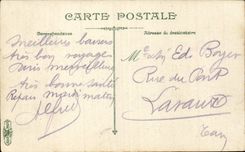 CARTE POSTALE
Correspondance
Adresse du destinataire
meilleurs baisers
très bon voyage
Paris
très bonne santé
Repars mardi matin
Alfred
Edr Boyer
Rue du Pont
Lavaur
Tarn